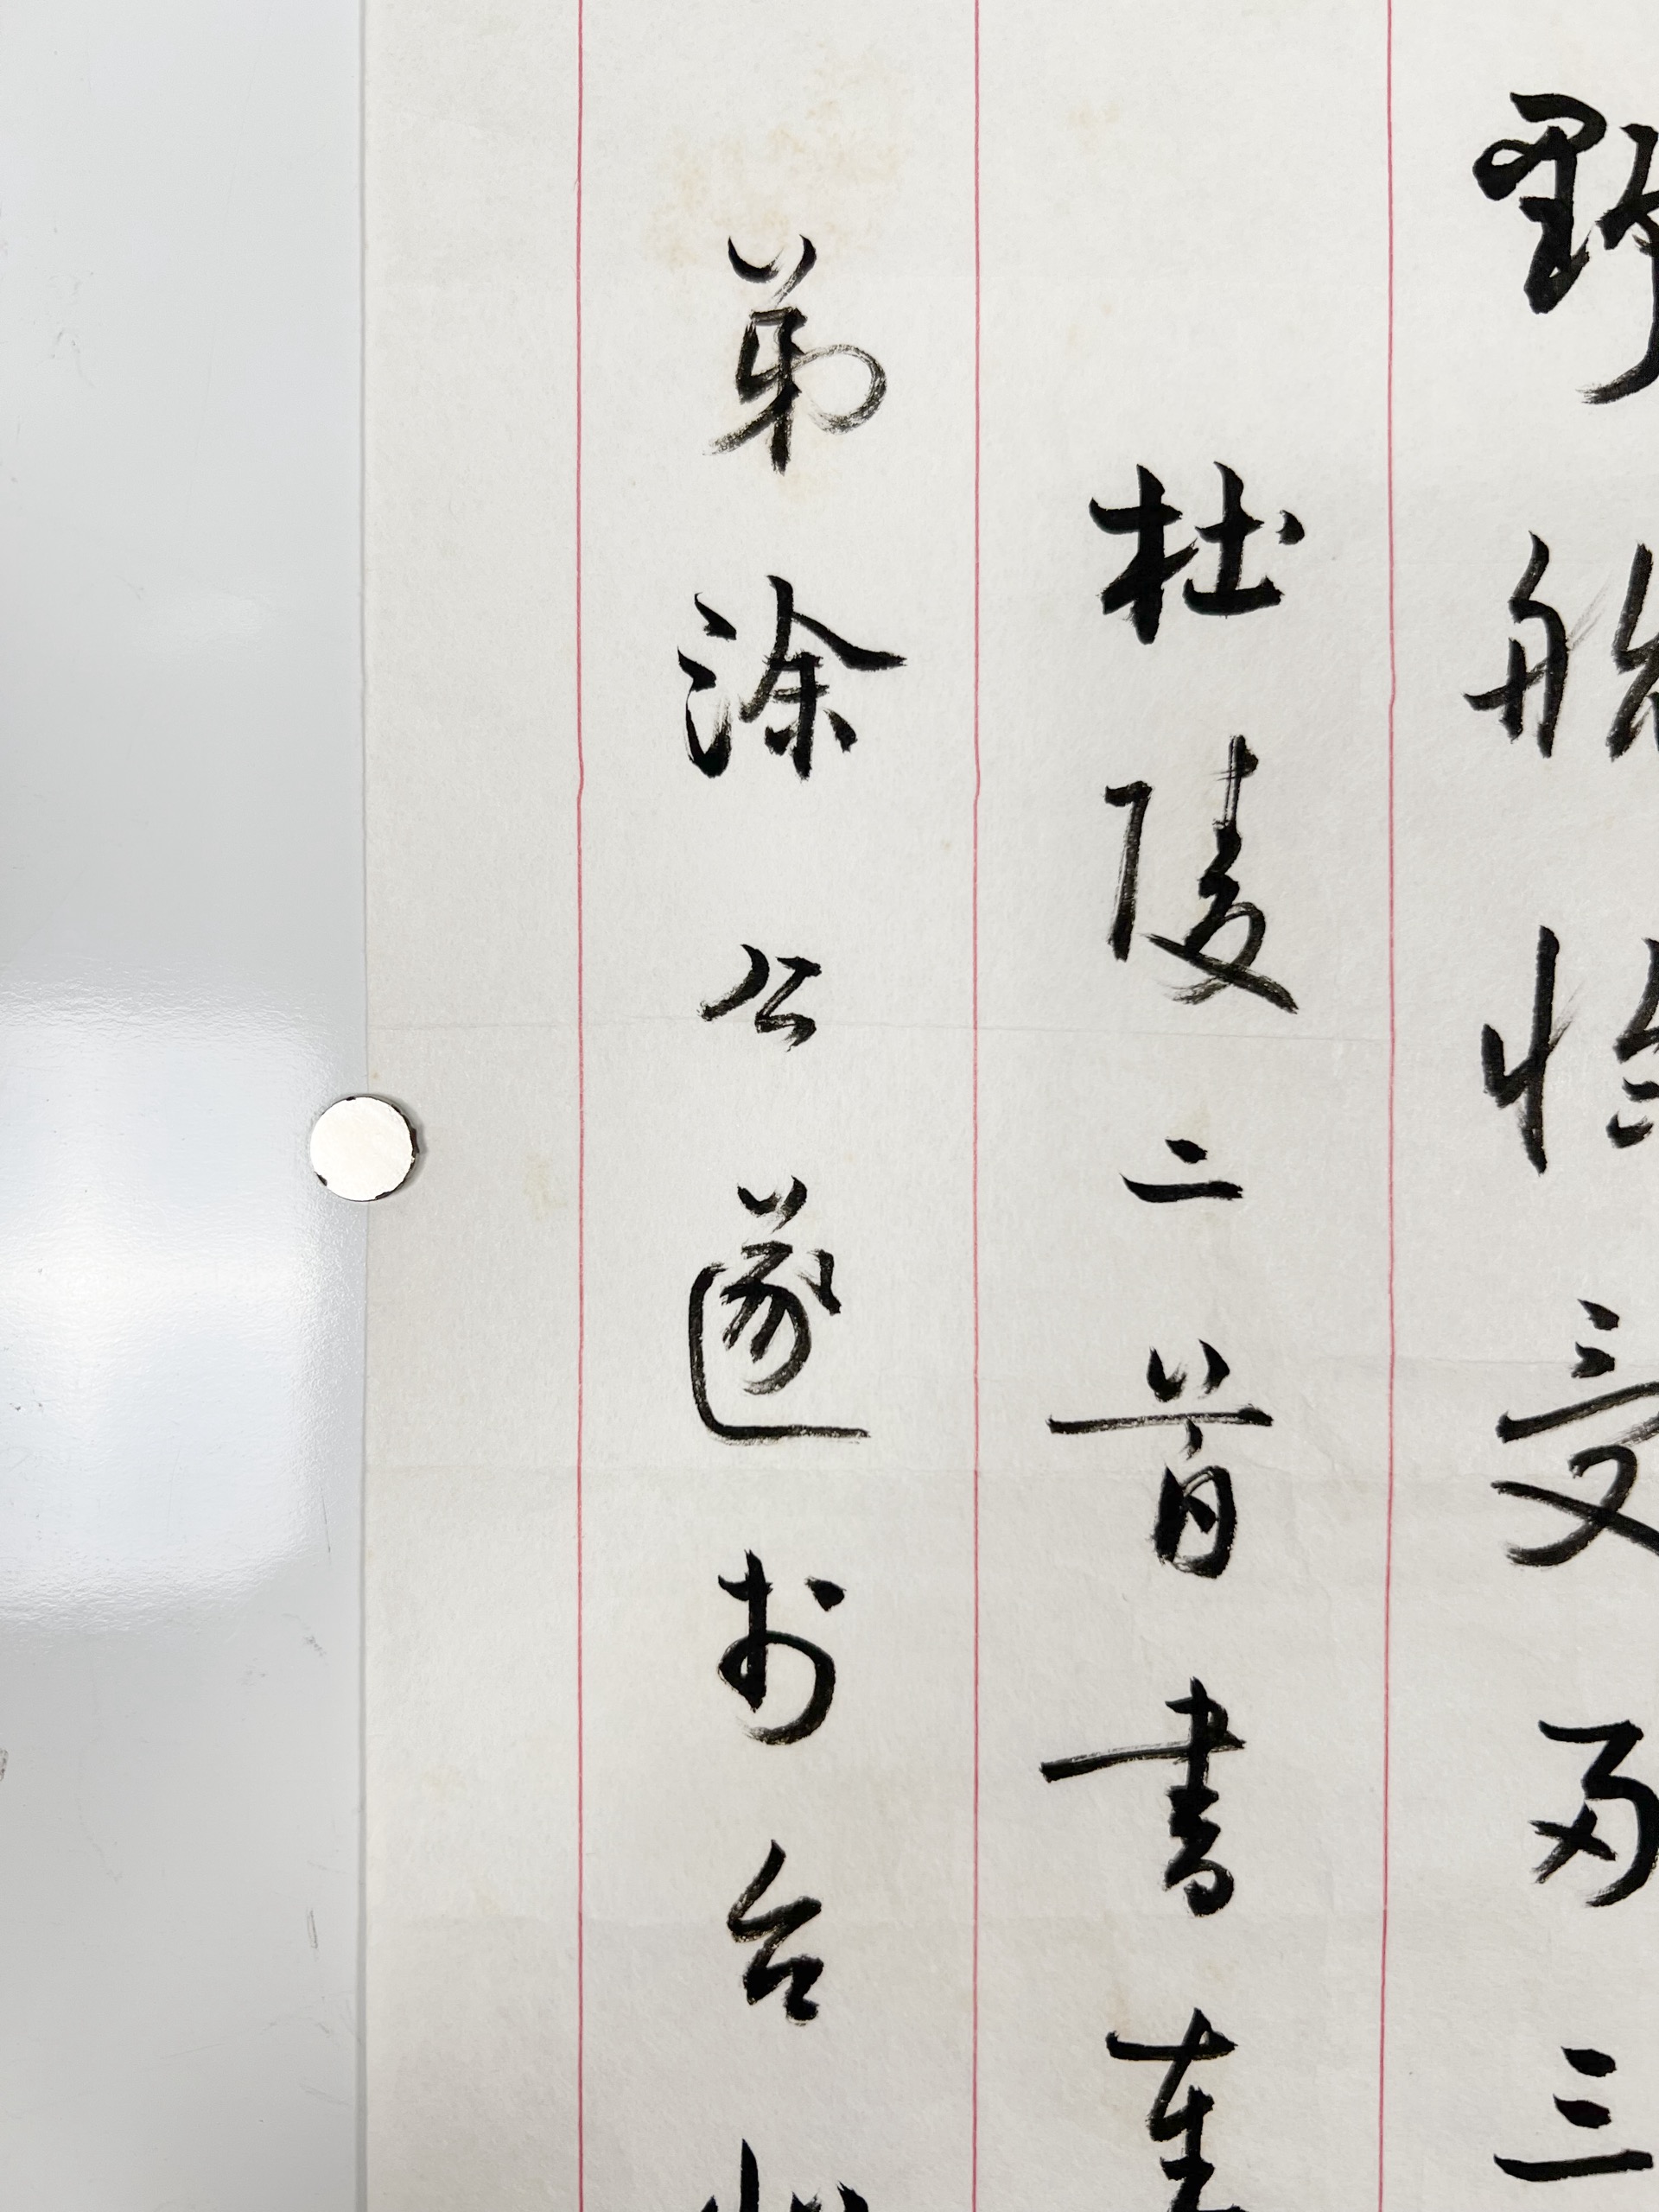 野航恰受兩三
杜陵二首書奉
弟涂公遂於台